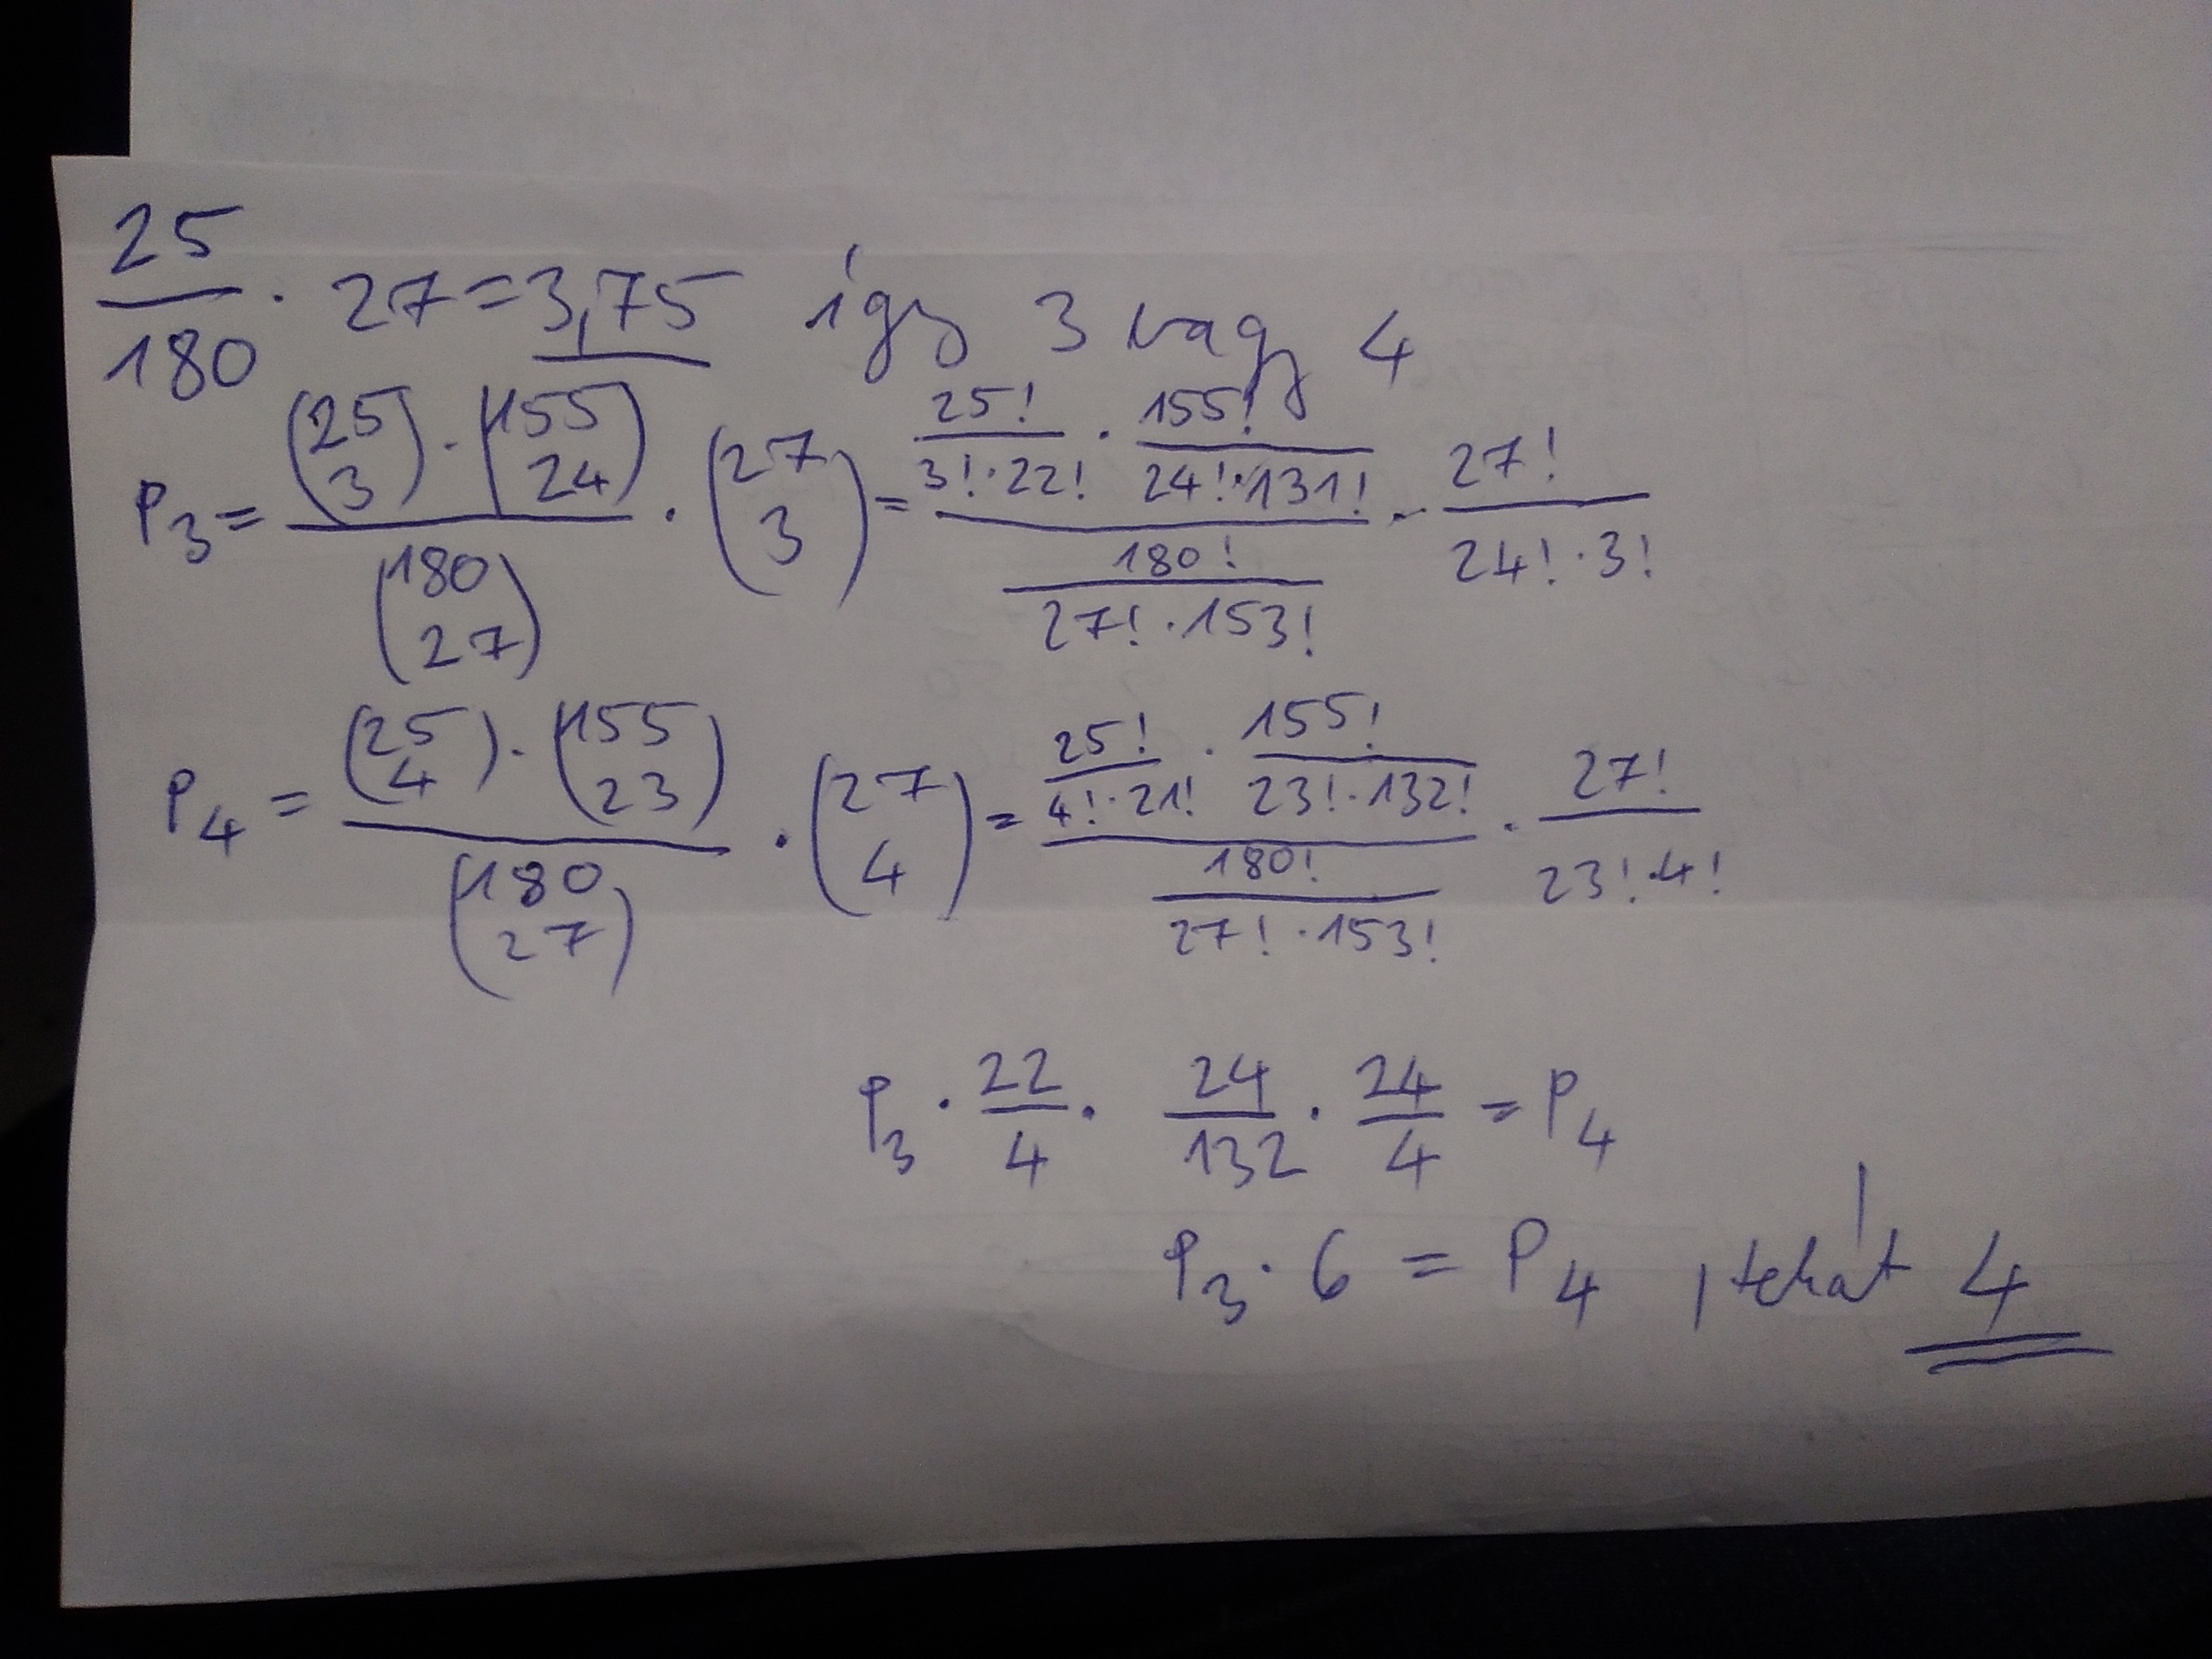 25/180 · 27 = 3,75 így 3 vagy 4
P₃ = (25 3) · (155 24) / (180 27) · (27 3) = 25!/(3!·22!) · 155!/(24!·131!) / 180!/(27!·153!) · 27!/(24!·3!)
P₄ = (25 4) · (155 23) / (180 27) · (27 4) = 25!/(4!·21!) · 155!/(23!·132!) / 180!/(27!·153!) · 27!/(23!·4!)
P₃ · 22/4 · 24/132 · 24/4 = P₄
P₃ · 6 = P₄ , tehát 4